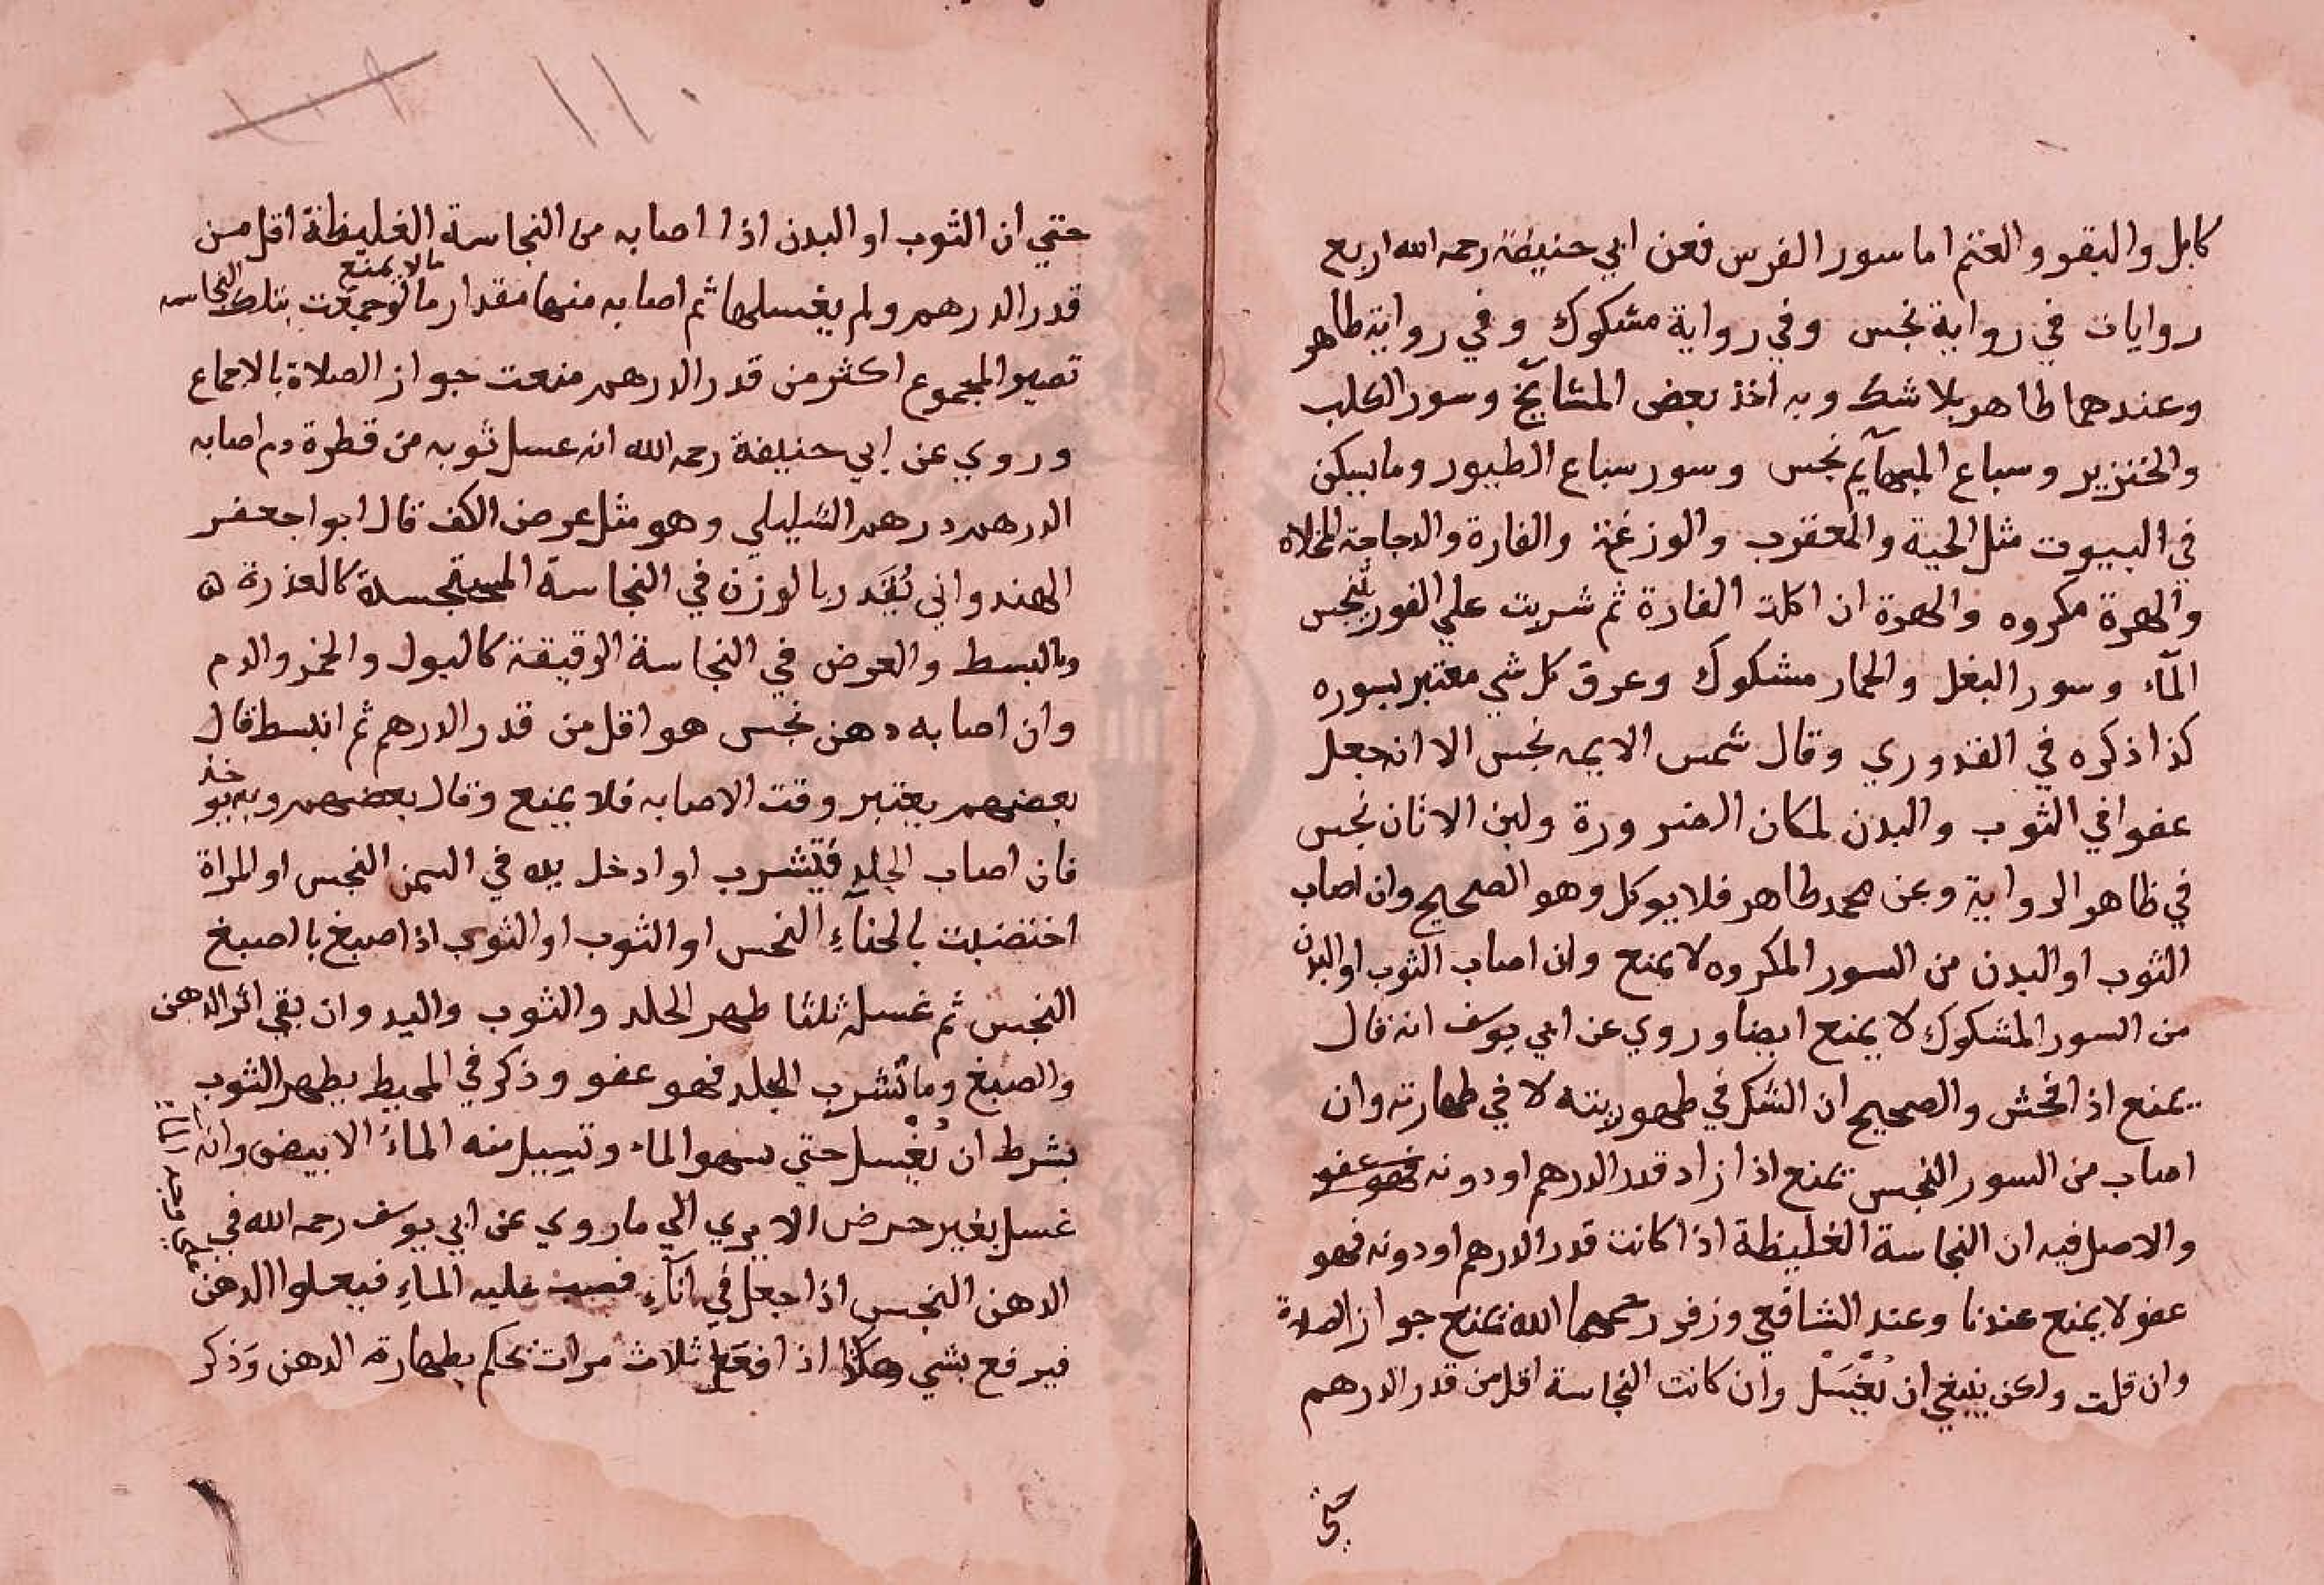 كابل والبقر والغنم اما سور الفرس فعن ابي حنيفة رحمه الله اربع
روايات في رواية نجس وفي رواية مشكوك وفي رواية طاهر
وعندهما طاهر بلا شك وبه اخذ بعض المشايخ وسور الكلب
والخنزير وسباع البهآيم نجس وسور سباع الطيور وما يسكن
في البيوت مثل الحية والعقرب والوزغة والفارة والدجاجة المخلاه
والهرة مكروه والهرة ان اكلت الفارة ثم شربت علي الفور تنجس
المآء وسور البغل والحمار مشكوك وعرق كل شي معتبر بسوره
كذا ذكره في القدوري وقال شمس الايمه نجس الا انه جعل
عفوا في الثوب والبدن لمكان الضرورة ولبن الاتان نجس
في ظاهر الرواية وعن محمد طاهر فلا يوكل وهو الصحيح وان اصاب
الثوب او البدن من السور المكروه لا يمنع وان اصاب الثوب او البدن
من السور المشكوك لا يمنع ايضا وروي عن ابي يوسف انه قال
يمنع اذا فحش والصحيح ان الشك في طهوريته لا في طهارته وان
اصاب من السور النجس يمنع اذا زاد قدر الدرهم او دونه فهو عفو
والاصل فيه ان النجاسة الغليظة اذا كانت قدر الدرهم او دونه فهو
عفو لا يمنع عندنا وعند الشافعي وزفر رحمهما الله يمنع جواز الصلاة
وان قلت ولكن ينبغي ان يغسل وان كانت النجاسة اقل من قدر الدرهم
حتي
١١٠
حتي ان الثوب او البدن اذا اصابه من النجاسة الغليظة اقل من
قدر الدرهم ولم يغسلها ثم اصابه منها مقدار ما لا يمنع لو جمعت بتلك النجاسه
تصير المجموع اكثر من قدر الدرهم منعت جواز الصلاة بالاجماع
وروي عن ابي حنيفة رحمه الله انه غسل ثوبه من قطرة دم اصابه
الدرهم درهم الشليلي وهو مثل عرض الكف قال ابوا جعفر
الهندواني يُقَدر بالوزن في النجاسة المستجسدة كالعذرة ه
وبالبسط والعرض في النجاسة الرقيقة كالبول والخمر والدم
وان اصابه دهن نجس هو اقل من قدر الدرهم ثم انبسط قال
بعضهم يعتبر وقت الاصابه فلا يمنع وقال بعضهم وبه يوخذ
فان اصاب الجلد فتشرب او ادخل يده في السمن النجس او المراة
اختضبت بالحناءِ النجس او الثوب او الثوب اذا صبغ بالصبغ
النجس ثم غسله ثلثا طهر الجلد والثوب واليد وان بقي اثر الدهن
والصبغ وما تشرب الجلد فهو عفو وذكر في المحيط يطهر الثوب
بشرط ان يُغْسل حتي الماء وتسيل منه الماءُ الابيض وانه
غسل بغير حرض الا يري الي ما روي عن ابي يوسف رحمه الله في
الدهن النجس اذا جعل في انآءِ فصب عليه الماءِ فيعلوا الدهن
فيرفع بشي وهكذا اذا فعل ثلاث مرات نحكم بطهارة الدهن وَذكر